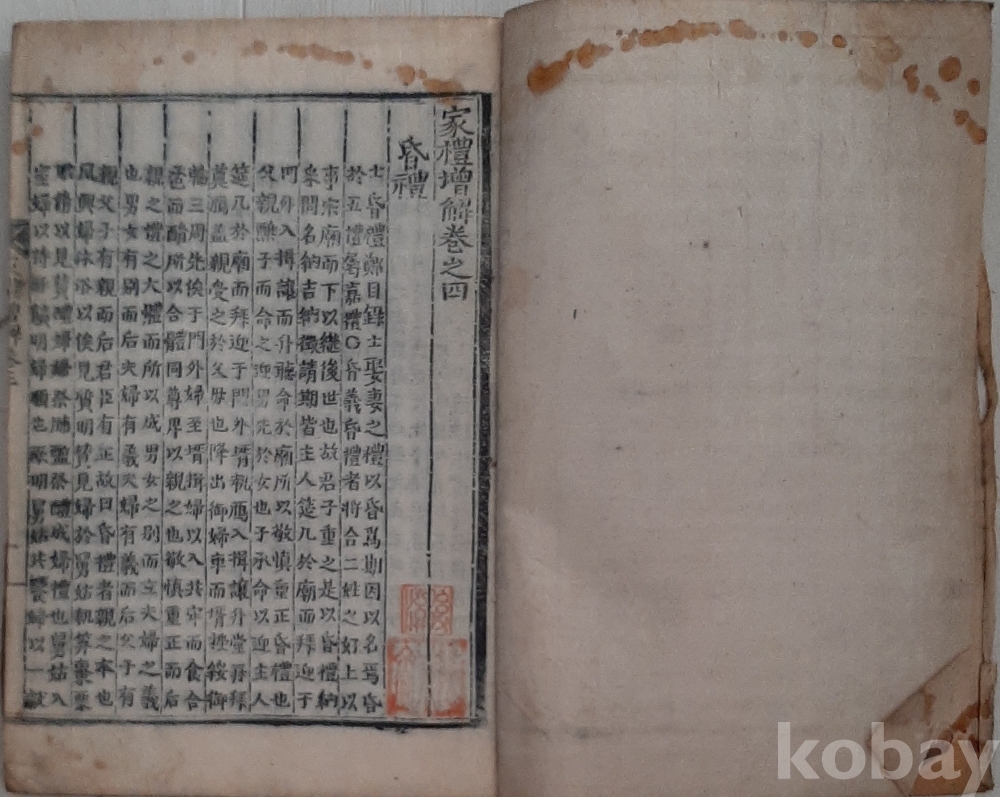 家禮增解卷之四
昏禮
士昏禮鄭目錄士娶妻之禮以昏爲期因以名焉昏
於五禮屬嘉禮○昏義昏禮者將合二姓之好上以
事宗廟而下以継後世也故君子重之是以昏禮納
采問名納吉納徵請期皆主人筵几於廟而拜迎于
門外入揖讓而升聽命於廟所以敬慎重正昏禮也
父親醮子而命之迎男先於女也子承命以迎主人
筵几於廟而拜迎于門外壻執鴈入揖讓升堂再拜
奠鴈盖親受之於父母也降出御婦車而壻授綏御
輪三周先俟于門外婦至壻揖婦以入共牢而食合
卺而酳所以合體同尊卑以親之也敬慎重正而后
親之禮之大體而所以成男女之别而立夫婦之義
也男女有别而后夫婦有義夫婦有義而后父子有
親父子有親而后君臣有正故曰昏禮者禮之本也
夙興婦沐浴以俟見質明贊見婦於舅姑執笲棗栗
以見贊醴婦婦祭脯醢祭醴成婦禮也舅姑入
室婦以特豚饋明婦順也厥明舅姑共饗婦以一獻
kobay